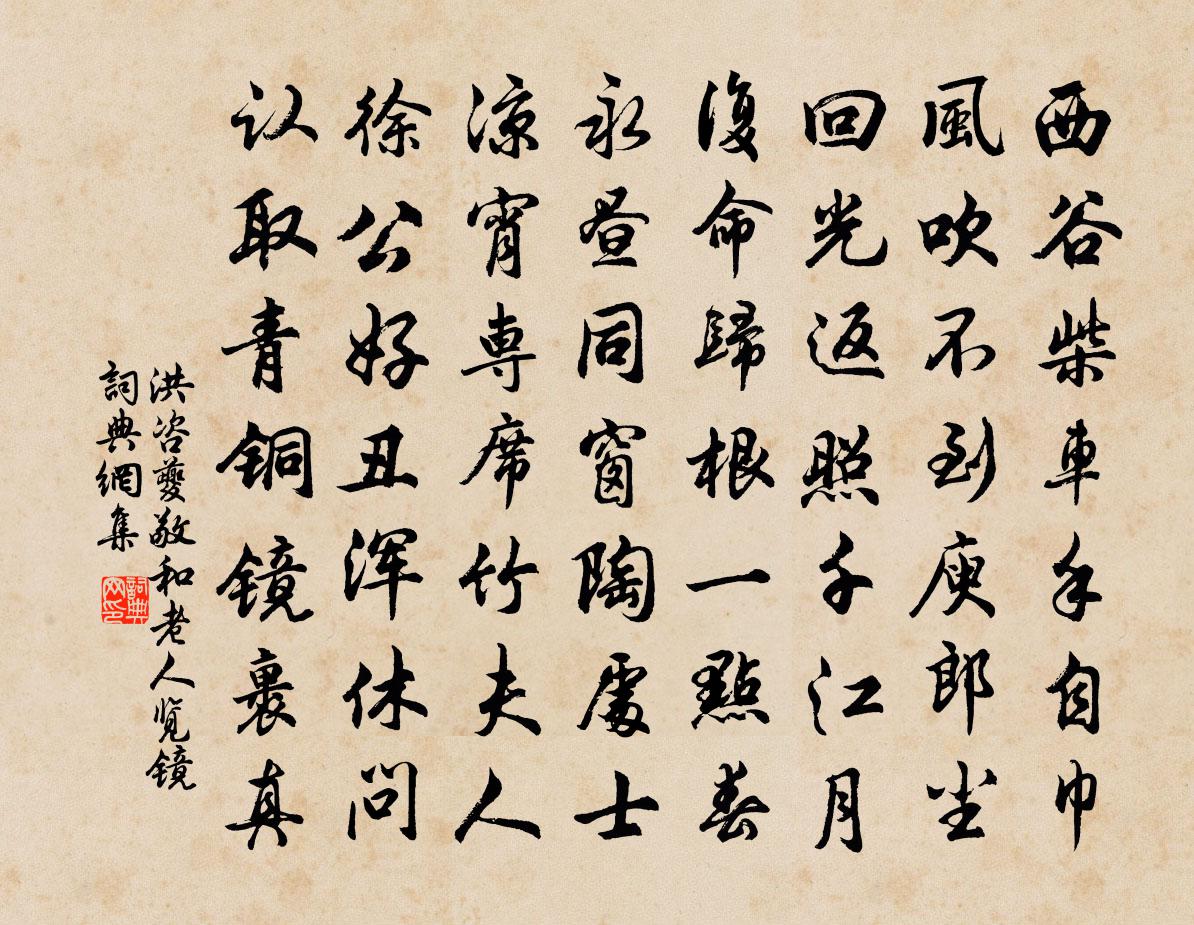 西谷柴車手自巾
風吹不到庾郎塵
回光返照千江月
復命歸根一點春
永昼同窗陶處士
涼宵専席竹夫人
徐公好丑浑休问
认取青铜镜裹真
洪咨夔敬和老人览镜
詞典網集
詞典网印